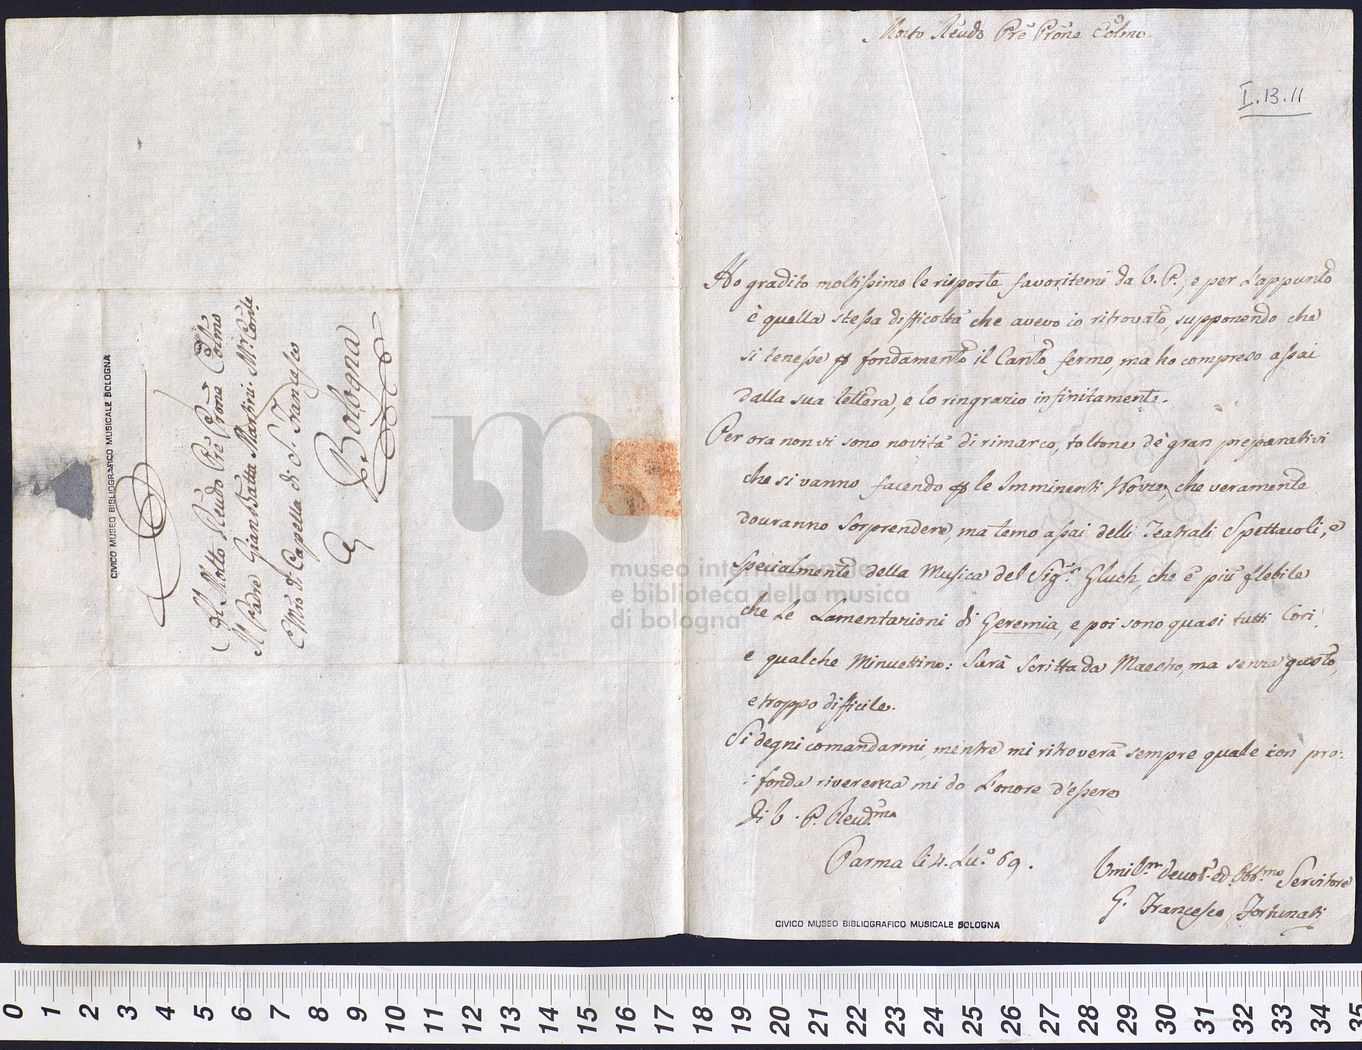 Molto Rẽndo Prẽ Prõne Cõlmo
I.13.11
Ho gradito moltissimo le risposte favoritemi da V. P., e per l'appunto
è quella stessa difficoltà che avevo io ritrovato, supponendo che
si tenesse fondamento il Canto fermo, ma ho compreso assai
dalla sua lettera, e lo ringrazio infinitamente.
Per ora non vi sono novità di rimarco, toltone de gran preparativi
che si vanno facendo le Imminenti Nozze, che veramente
dovranno sorprendere, ma temo assai delli Teatrali Spettacoli, e
specialmente della Musica del Sig.r Gluch, che è più flebile
che le Lamentazioni di Geremia, e poi sono quasi tutti Cori,
e qualche Minuettino: sarà scritta da Maestro, ma senza gusto,
e troppo difficile.
Si degni comandarmi, mentre mi ritroverà sempre quale con pro:
:fonda riverenza mi do l'onore d'essere
Di V. P. Reud.ma
Parma li 4. Lu.o 69.
Umil.mo devot. ed Obb.mo Servitore
G. Francesco Fortunati
CIVICO MUSEO BIBLIOGRAFICO MUSICALE BOLOGNA
Al Molto Rẽndo Prẽ Prõne Cõlmo
Il Padre Giambatta Martini Mr. Conle
Mro di Capella di S. Francesco
Bologna
CIVICO MUSEO BIBLIOGRAFICO MUSICALE BOLOGNA
museo internazionale
e biblioteca della musica
di bologna
0 1 2 3 4 5 6 7 8 9 10 11 12 13 14 15 16 17 18 19 20 21 22 23 24 25 26 27 28 29 30 31 32 33 34 35